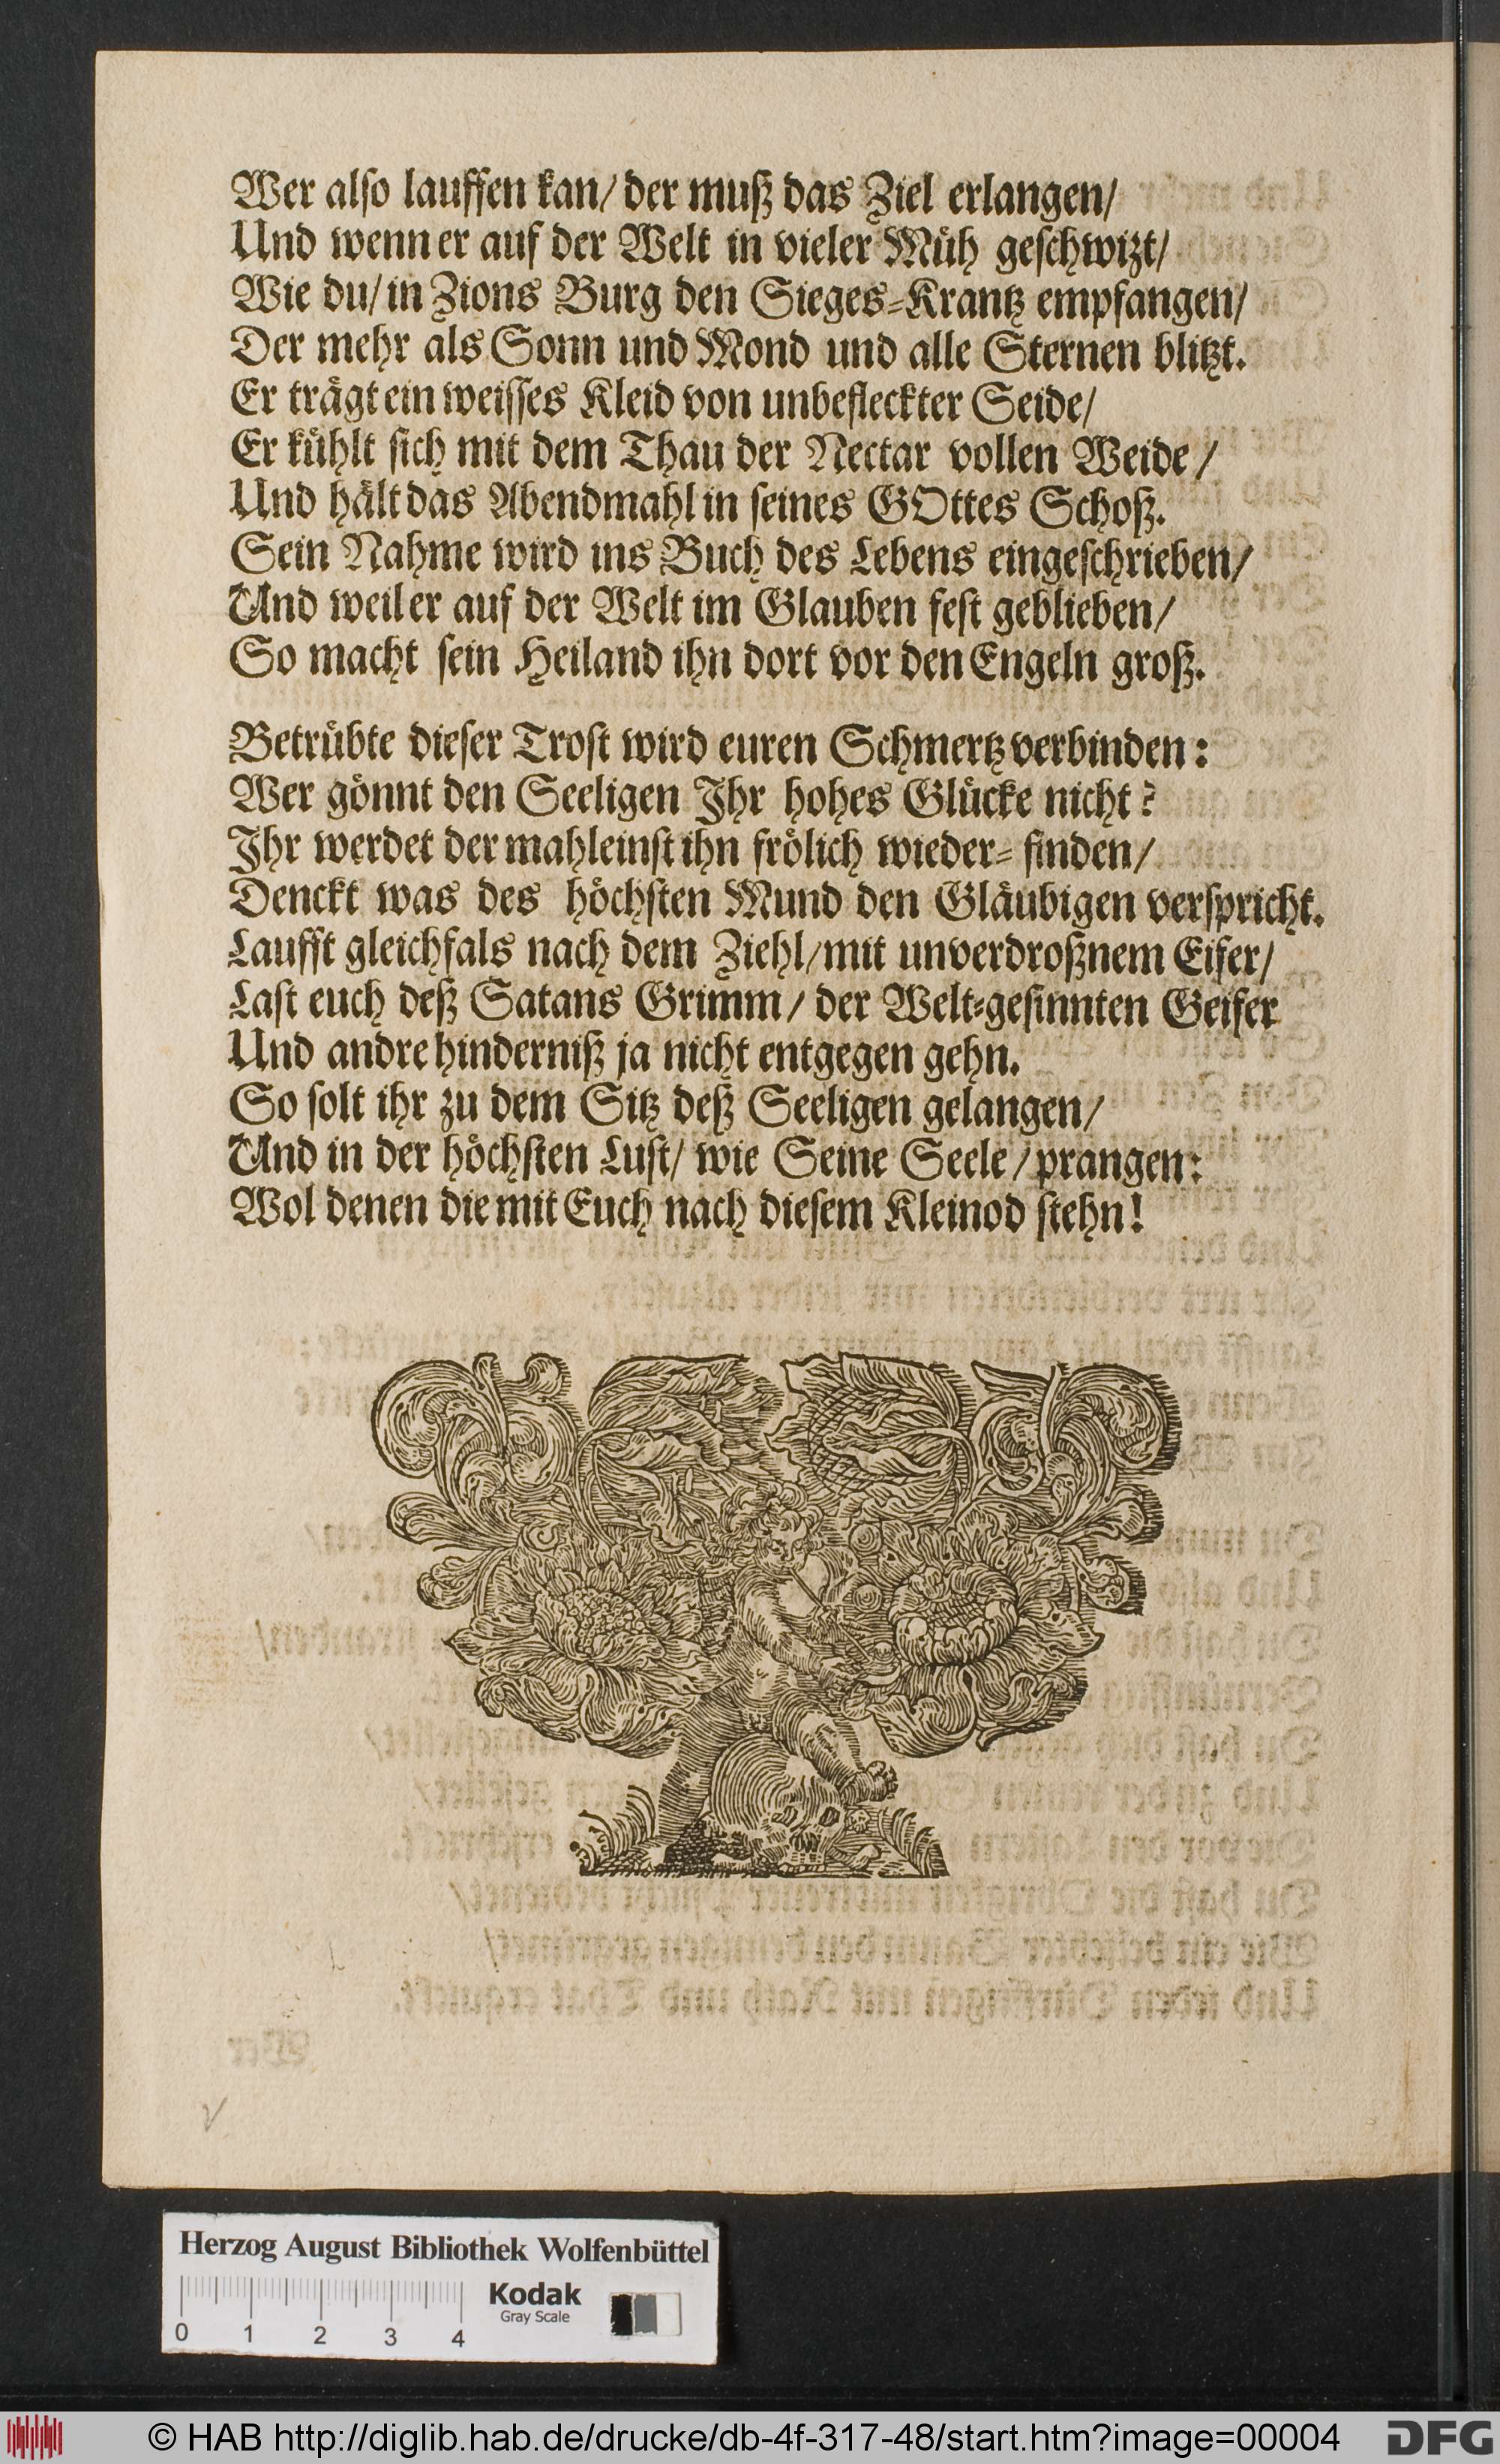 Wer also lauffen kan/ der muß das Ziel erlangen/
Und wenn er auf der Welt in vieler Müh geschwizt/
Wie du/ in Zions Burg den Sieges-Krantz empfangen/
Der mehr als Sonn und Mond und alle Sternen blitzt.
Er trägt ein weisses Kleid von unbefleckter Seide/
Er kühlt sich mit dem Thau der Nectar vollen Weide/
Und hält das Abendmahl in seines GOttes Schoß.
Sein Nahme wird ins Buch des Lebens eingeschrieben/
Und weil er auf der Welt im Glauben fest geblieben/
So macht sein Heiland ihn dort vor den Engeln groß.
Betrübte dieser Trost wird euren Schmertz verbinden:
Wer gönnt den Seeligen Ihr hohes Glücke nicht?
Ihr werdet der mahleinst ihn frölich wieder-finden/
Denckt was des höchsten Mund den Gläubigen verspricht.
Laufft gleichfals nach dem Ziehl/ mit unverdroßnem Eifer/
Last euch deß Satans Grimm/ der Welt-gesinnten Geifer
Und andre hinderniß ja nicht entgegen gehn.
So solt ihr zu dem Sitz deß Seeligen gelangen/
Und in der höchsten Lust/ wie Seine Seele/ prangen:
Wol denen die mit Euch nach diesem Kleinod stehn!
Herzog August Bibliothek Wolfenbüttel
Kodak
Gray Scale
0 1 2 3 4
© HAB http://diglib.hab.de/drucke/db-4f-317-48/start.htm?image=00004
DFG